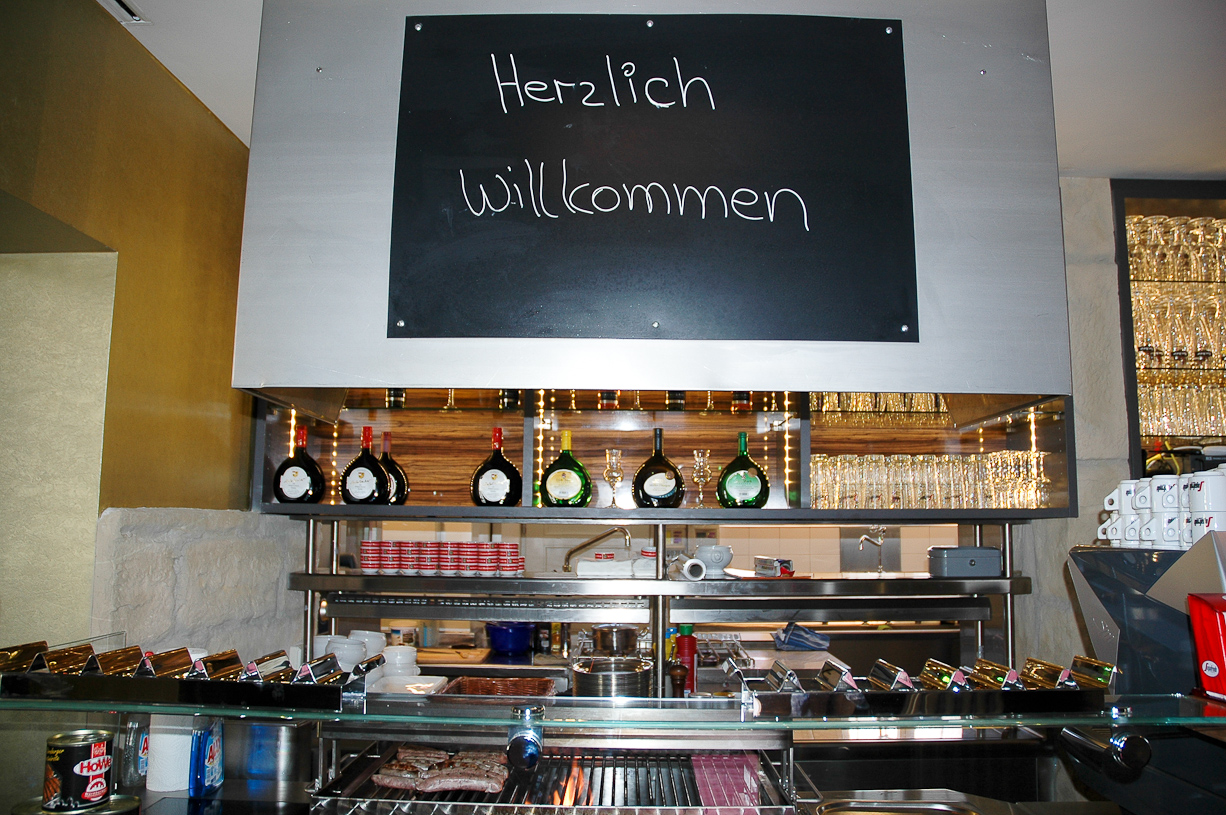 Herzlich
Willkommen
HoWe